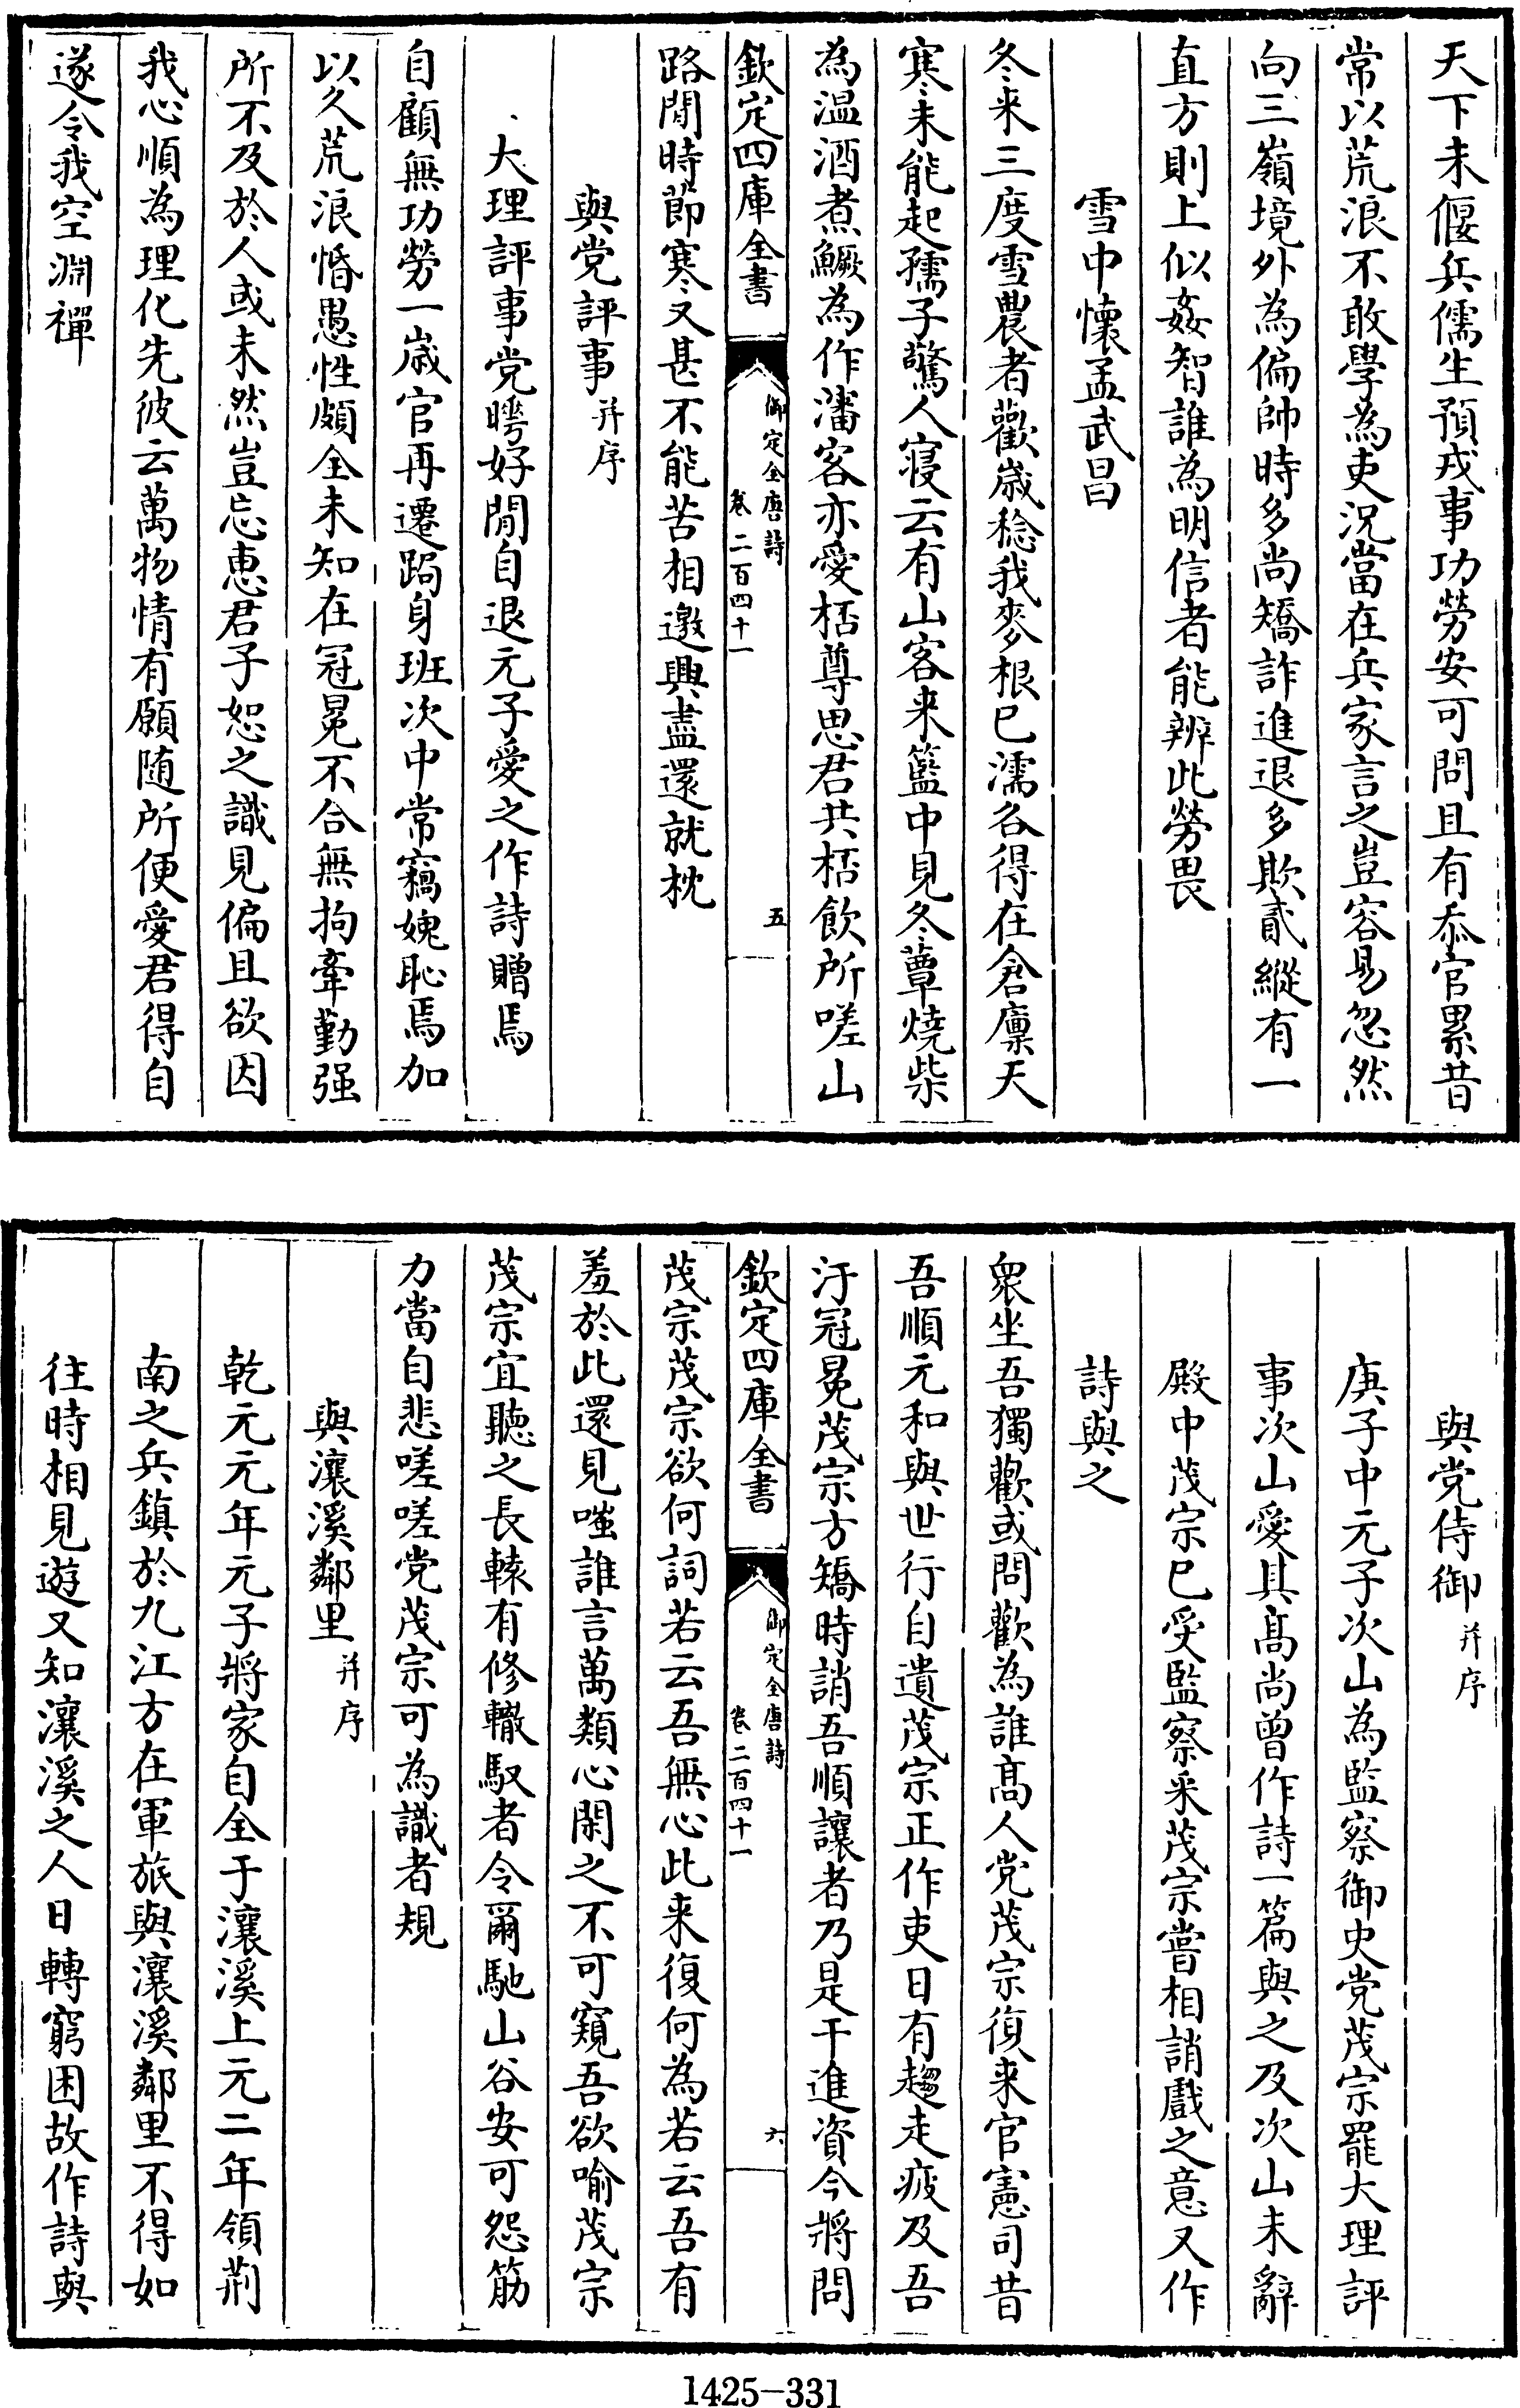 天下未偃兵儒生預戎事功勞安可問且有忝官累昔
常以荒浪不敢學為吏況當在兵家言之豈容易忽然
向三嶺境外為偏帥時多尚矯詐進退多欺貳縱有一
直方則上似姦智誰為明信者能辨此勞畏
雪中懷孟武昌
冬来三度雪農者歡歳稔我麥根已濡各得在倉廩天
寒未能起孺子驚人寝云有山客来籃中見冬蕈燒柴
為温酒煮鱖為作瀋客亦愛栝尊思君共栝飲所嗟山
欽定四庫全書
御定全唐詩
卷二百四十一
五
路閒時節寒又甚不能苦相邀興盡還就枕
與党評事并序
大理評事党曄好閒自退元子愛之作詩贈焉
自顧無功勞一歳官再遷跼身班次中常竊媿恥焉加
以久荒浪惛愚性頗全未知在冠冕不合無拘牽勤强
所不及於人或未然豈忘惠君子恕之識見偏且欲因
我心順為理化先彼云萬物情有願随所便愛君得自
遂令我空淵禪
與党侍御并序
庚子中元子次山為監察御史党茂宗罷大理評
事次山愛其髙尚曾作詩一篇與之及次山未辭
殿中茂宗已受監察采茂宗嘗相誚戲之意又作
詩與之
衆坐吾獨歡或問歡為誰髙人党茂宗復来官憲司昔
吾順元和與世行自遺茂宗正作吏日有趨走疲及吾
汙冠冕茂宗方矯時誚吾順讓者乃是干進資今將問
欽定四庫全書
御定全唐詩
卷二百四十一
六
茂宗茂宗欲何詞若云吾無心此来復何為若云吾有
羞於此還見嗤誰言萬類心閑之不可窺吾欲喻茂宗
茂宗宜聽之長轅有修轍馭者令爾馳山谷安可怨筋
力當自悲嗟嗟党茂宗可為識者規
與瀼溪鄰里并序
乾元元年元子將家自全于瀼溪上元二年領荆
南之兵鎮於九江方在軍旅與瀼溪鄰里不得如
往時相見遊又知瀼溪之人日轉窮困故作詩與
1425-331